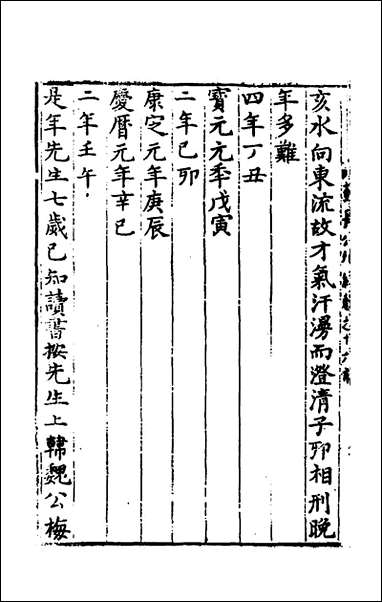 亥水向東流故才氣汗漫而澄清子卯相刑晚
年多難
四年丁丑
寶元元年戊寅
二年己卯
康定元年庚辰
慶曆元年辛巳
二年壬午
是年先生七歲已知讀書按先生上韓魏公梅